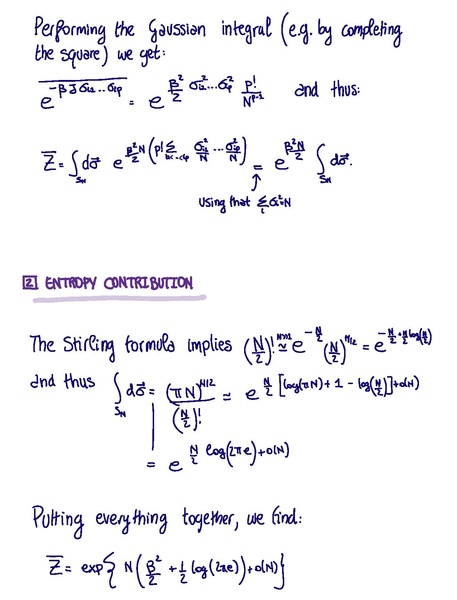 Performing the Gaussian integral (e.g. by completing
the square) we get:
\overline{e^{-βJσ_{i1}...σ_{ip}}} = e^{\frac{β^2}{2} σ_{i1}^2...σ_{ip}^2 \frac{p!}{N^{p-1}}} and thus:
\overline{Z} = ∫_{S_N} d\vec{σ} e^{\frac{β^2}{2}N (p! Σ_{i1<...<ip} \frac{σ_{i1}^2}{N} ... \frac{σ_{ip}^2}{N})} = e^{\frac{β^2 N}{2}} ∫_{S_N} d\vec{σ}.
↑
using that Σ_i σ_i^2=N
2 ENTROPY CONTRIBUTION
The Stirling formula implies (\frac{N}{2})! \overset{N≫1}{≃} e^{-\frac{N}{2}} (\frac{N}{2})^{N/2} = e^{-\frac{N}{2}+\frac{N}{2} log(\frac{N}{2})}
and thus ∫_{S_N} d\vec{σ} = \frac{(πN)^{N/2}}{(\frac{N}{2})!} ≃ e^{\frac{N}{2} [log(πN) + 1 - log(\frac{N}{2})] + o(N)}
= e^{\frac{N}{2} log(2πe) + o(N)}
Putting everything together, we find:
\overline{Z} = exp{ N (\frac{β^2}{2} + \frac{1}{2} log(2πe)) + o(N) }